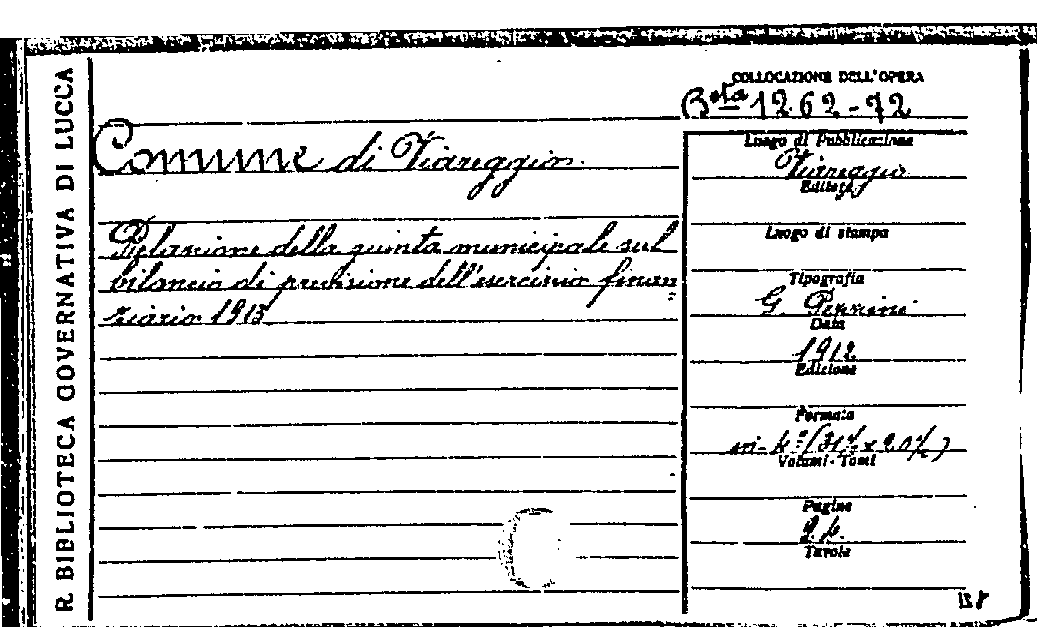 R. BIBLIOTECA GOVERNATIVA DI LUCCA
COLLOCAZIONE DELL'OPERA
Bsta 1262-72
Comune di Viareggio.
Relazione della giunta municipale sul
bilancio di previsione dell'esercizio finan=
ziario 1913
Luogo di Pubblicazione
Viareggio
Editore
Luogo di stampa
Tipografia
G.
Data
1912
Edizione
Formato
in-4º (31½ x 20½)
Volumi-Tomi
Pagine
Tavole